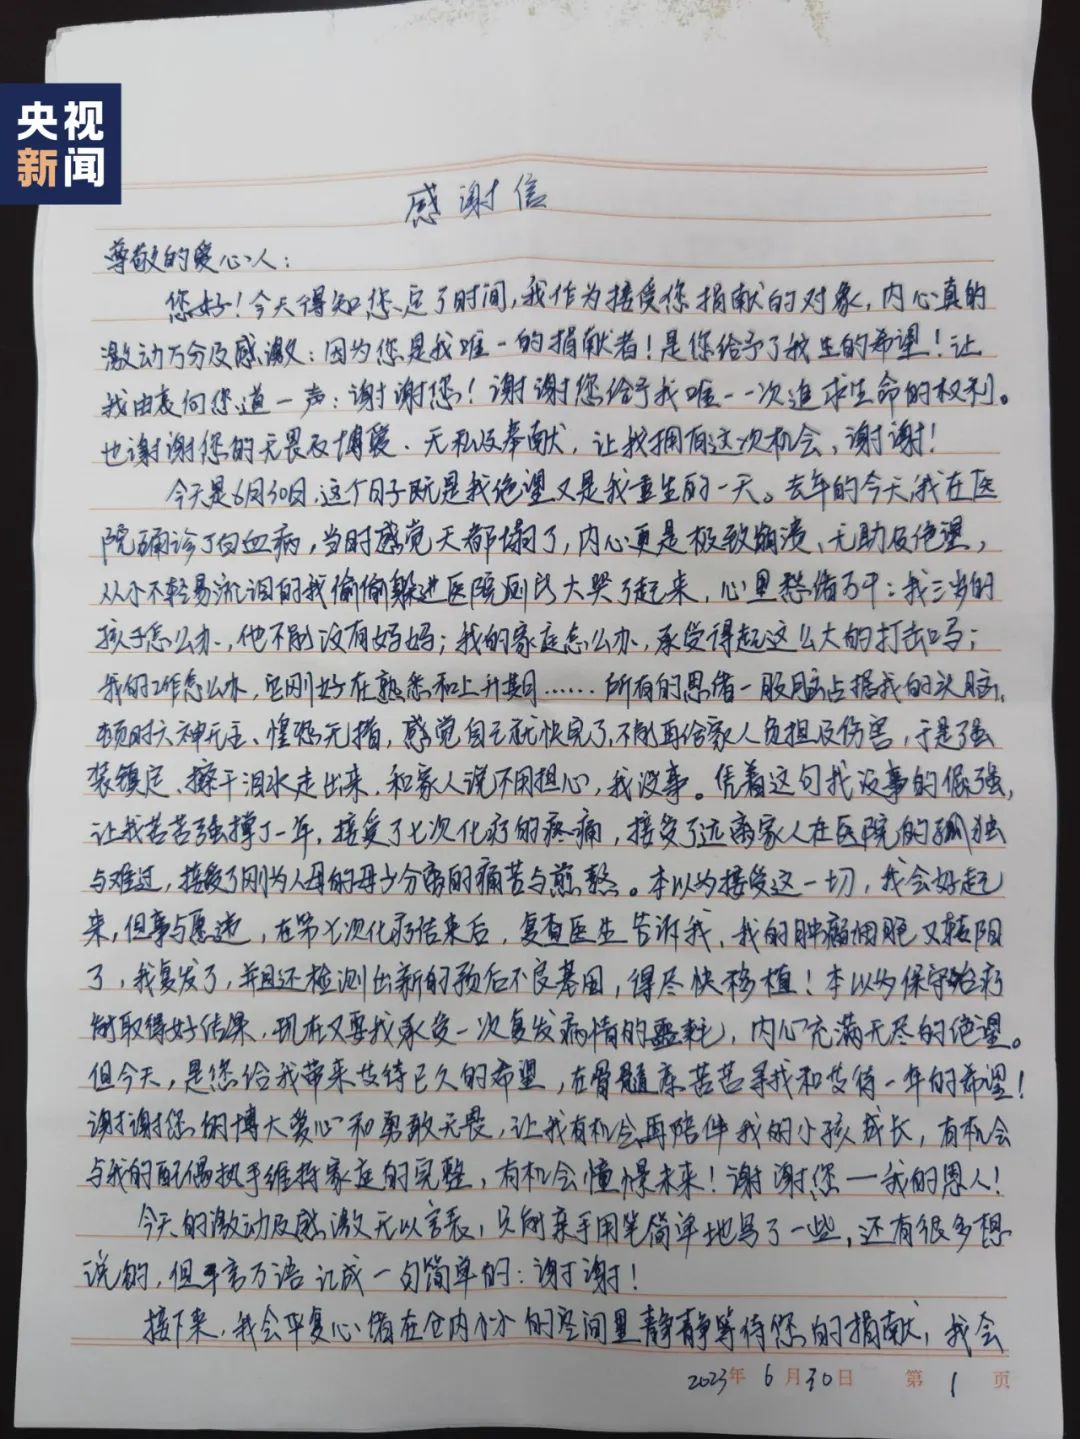 央视
新闻
感谢信
尊敬的爱心人：
您好！今天得知您定了时间，我作为接受您捐献的对象，内心真的
激动万分及感激：因为您是我唯一的捐献者！是您给予了我生的希望！让
我由衷向您道一声：谢谢您！谢谢您给予我唯一一次追求生命的权利。
也谢谢您的无畏及博爱、无私及奉献，让我拥有这次机会，谢谢！
今天是6月30日，这个日子既是我绝望又是我重生的一天。去年的今天，我在医
院确诊了白血病，当时感觉天都塌了，内心更是极致崩溃、无助及绝望，
从小不轻易流泪的我偷偷躲进医院厕所大哭了起来，心里愁绪万千：我三岁的
孩子怎么办，他不能没有妈妈；我的家庭怎么办，承受得起这么大的打击吗；
我的工作怎么办，它刚好在熟悉和上升期……所有的思绪一股脑占据我的头脑，
顿时六神无主、惶恐无措，感觉自己就快完了，不能再给家人负担及伤害，于是强
装镇定、擦干泪水走出来，和家人说不用担心，我没事。凭着这句我没事的倔强，
让我苦苦强撑了一年，接受了七次化疗的疼痛，接受了远离家人在医院的孤独
与难过，接受了刚为人母的母子分离的痛苦与煎熬。本以为接受这一切，我会好起
来，但事与愿违，在第七次化疗结束后，复查医生告诉我，我的肿瘤细胞又转阳
了，我复发了，并且还检测出新的预后不良基因，得尽快移植！本以为保守治疗
能取得好结果，现在又要我承受一次复发病情的噩耗，内心充满无尽的绝望。
但今天，是您给我带来友待已久的希望，在骨髓库苦苦寻找和友待一年的希望！
谢谢您的博大爱心和勇敢无畏，让我有机会再陪伴我的小孩成长，有机会
与我的配偶执手维持家庭的完整，有机会憧憬未来！谢谢您——我的恩人！
今天的激动及感激无以言表，只能亲手用笔简单地写了一些，还有很多想
说的，但千言万语汇成一句简单的：谢谢！
接下来，我会平复心绪在仓内小小的空间里静静等待您的捐献，我会
2023年6月30日 第1页